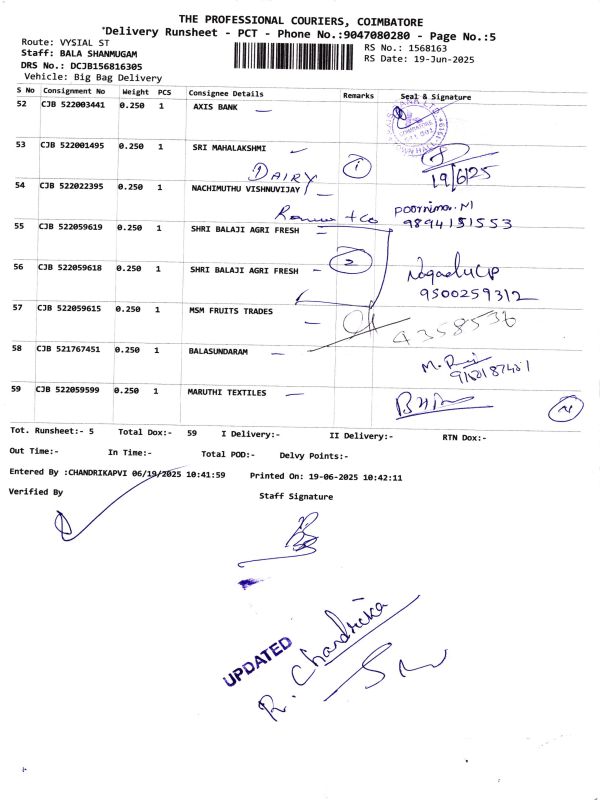 THE PROFESSIONAL COURIERS, COIMBATORE
Delivery Runsheet - PCT - Phone No.:9047080280 - Page No.:5
Route: VYSIAL ST
RS No.: 1568163
Staff: BALA SHANMUGAM
RS Date: 19-Jun-2025
DRS No.: DCJB156816305
Vehicle: Big Bag Delivery
S No Consignment No Weight PCS Consignee Details Remarks Seal & Signature
52 CJB 522003441 0.250 1 AXIS BANK
53 CJB 522001495 0.250 1 SRI MAHALAKSHMI
DAIRY 1 19/6/25
54 CJB 522022395 0.250 1 NACHIMUTHU VISHNUVIJAY
Poornima. M
9894151553
55 CJB 522059619 0.250 1 SHRI BALAJI AGRI FRESH
2
56 CJB 522059618 0.250 1 SHRI BALAJI AGRI FRESH
9500259312
57 CJB 522059615 0.250 1 MSM FRUITS TRADES
9358536
58 CJB 521767451 0.250 1 BALASUNDARAM
59 CJB 522059599 0.250 1 MARUTHI TEXTILES
Tot. Runsheet:- 5 Total Dox:- 59 I Delivery:- II Delivery:- RTN Dox:-
Out Time:- In Time:- Total POD:- Delvy Points:-
Entered By :CHANDRIKAPVI 06/19/2025 10:41:59 Printed On: 19-06-2025 10:42:11
Verified By Staff Signature
UPDATED
R. Chandrika